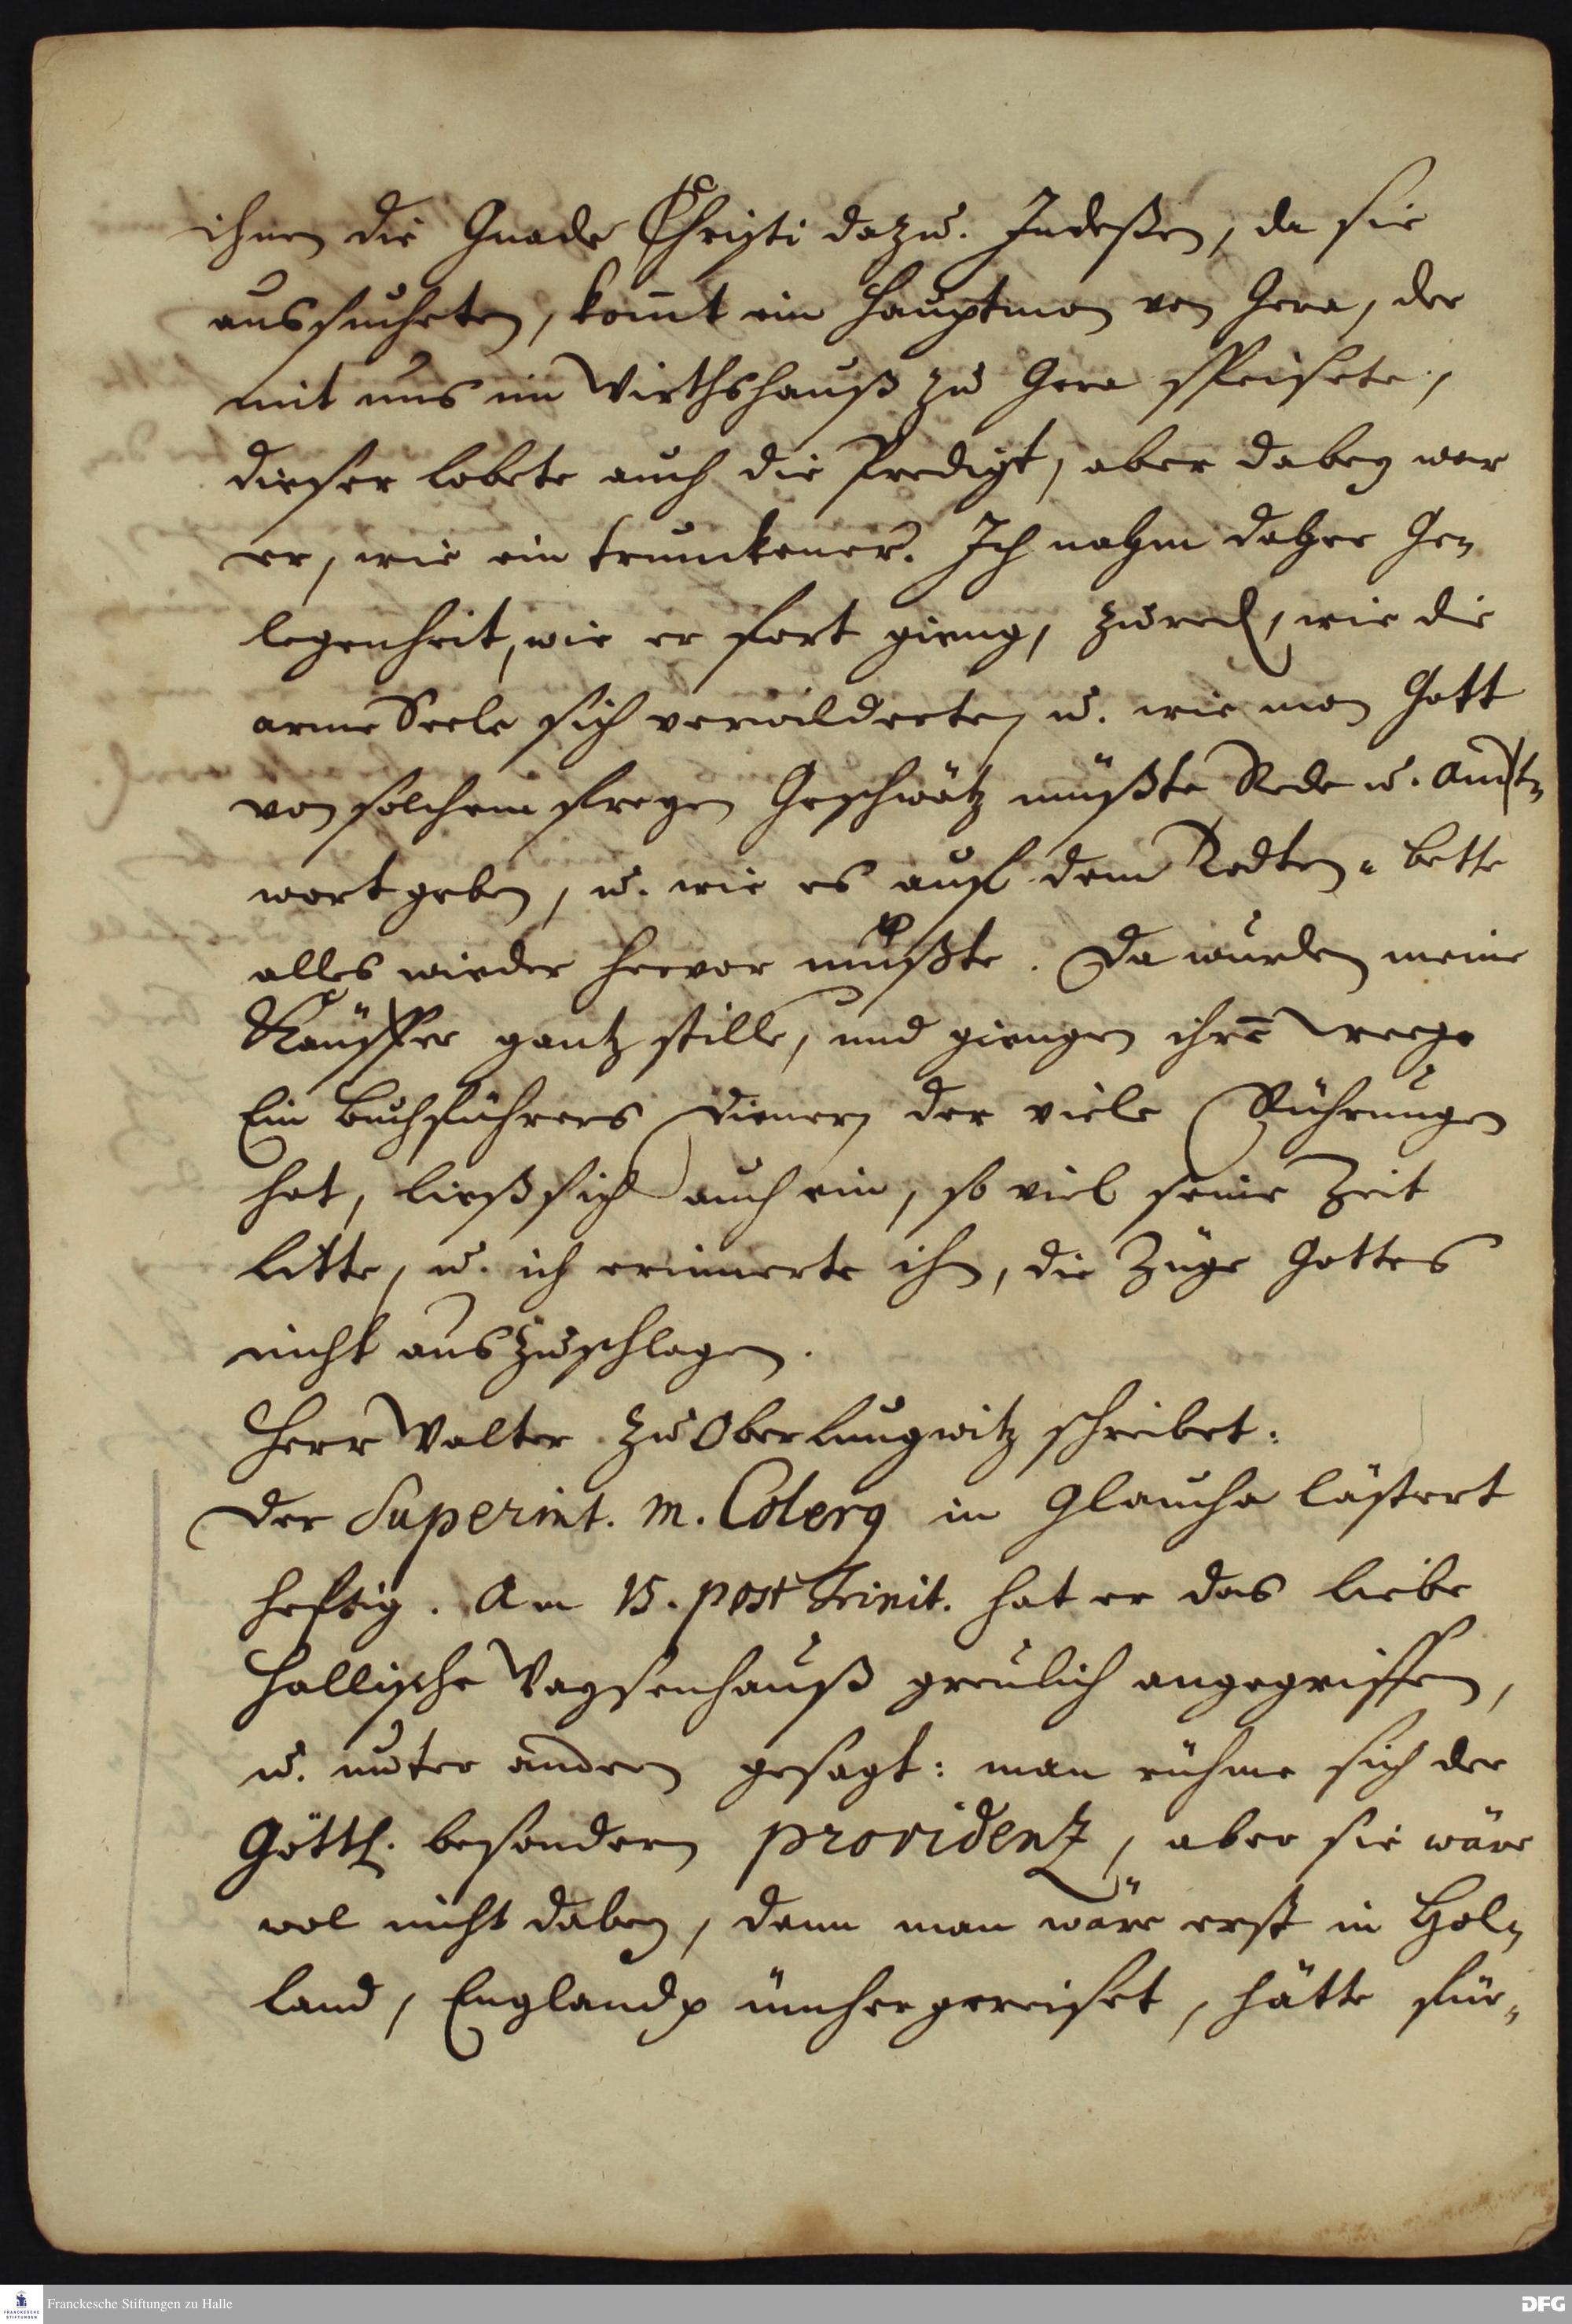 ihnen die Gnade Christi dazu. Indeßen, da sie
aussucheten, kom̄t ein Hauptman von Gera, der
mit uns im Wirthshauß zu Gera speisete,
dieser lobete auch die Predigt, aber dabey war
er, wie ein trunckener. Ich nahm daher Ge-
legenheit, wie er fort gieng, zured, wie die
arme Seele sich verwilderten u. wie man Gott
von solchem freyen Geschwätz müßte Rede u. Ant-
wort geben, u. wie es auf dem Todten-bette
alles wieder hervor müßte. Da wurden meine
Käuffer gantz stille, und giengen ihre weege
Ein Buchführers diener, der viele Rührungen
hat, ließ sich auch ein, so viel seine Zeit
litte, u. ich erinnerte ihn, die Züge Gottes
nicht auszuschlagen.
Herr Walter zu Oberlungwitz schreibet:
Der Superint. M. Colerg in Glaucha lästert
heftig. Am 15. post Trinit. hat er das liebe
Hallische Waysenhauß greulich angegriffen,
u. unter andern gesagt: man rühme sich der
Göttl. besondern providenz, aber sie wäre
wol nicht dabey, denn man wäre erst in Hol-
land, England p ümhergereiset, hätte für-
Franckesche Stiftungen zu Halle
DFG